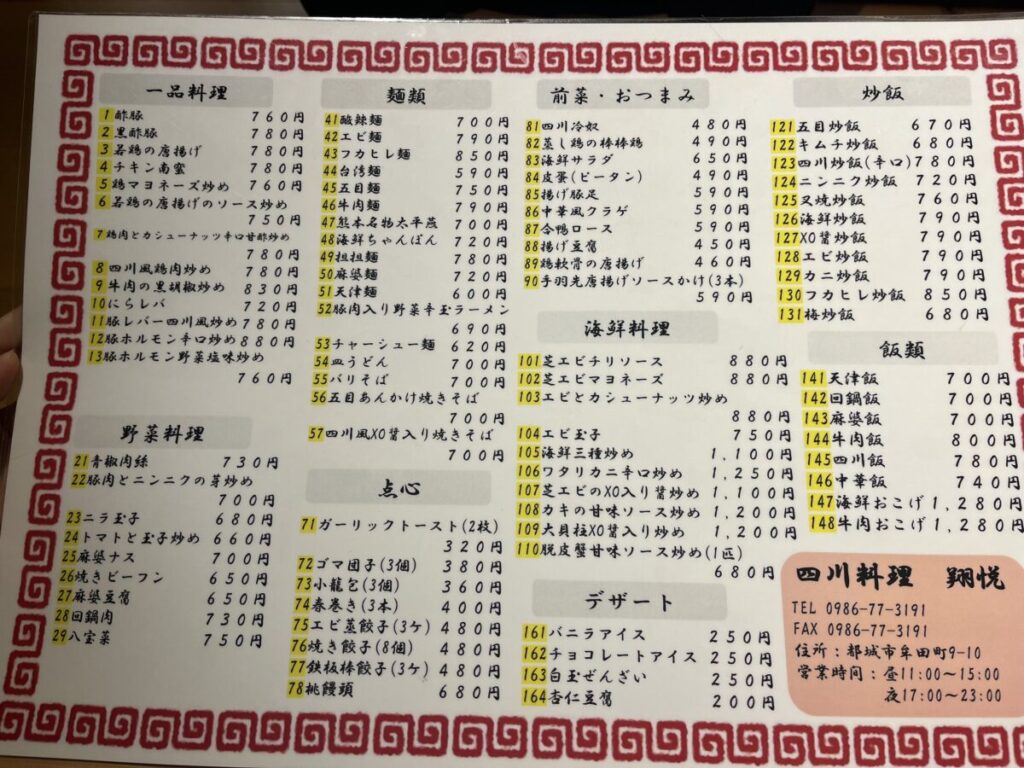 一品料理
1 酢豚 760円
2 黒酢豚 780円
3 若鶏の唐揚げ 780円
4 チキン南蛮 780円
5 鶏マヨネーズ炒め 760円
6 若鶏の唐揚げのソース炒め
750円
7 鶏肉とカシューナッツ辛口甘酢炒め
780円
8 四川風鶏肉炒め 780円
9 牛肉の黒胡椒炒め 830円
10 にらレバ 720円
11 豚レバー四川風炒め 780円
12 豚ホルモン辛口炒め 880円
13 豚ホルモン野菜塩味炒め
760円
野菜料理
21 青椒肉絲 730円
22 豚肉とニンニクの芽炒め
700円
23 ニラ玉子 680円
24 トマトと玉子炒め 660円
25 麻婆ナス 700円
26 焼きビーフン 650円
27 麻婆豆腐 650円
28 回鍋肉 730円
29 八宝菜 750円
麺類
41 酸辣麺 700円
42 エビ麺 790円
43 フカヒレ麺 850円
44 台湾麺 590円
45 五目麺 750円
46 牛肉麺 790円
47 熊本名物太平燕 700円
48 海鮮ちゃんぽん 720円
49 担担麺 780円
50 麻婆麺 720円
51 天津麺 600円
52 豚肉入り野菜辛玉ラーメン
690円
53 チャーシュー麺 620円
54 皿うどん 700円
55 バリそば 700円
56 五目あんかけ焼きそば
700円
57 四川風XO醤入り焼きそば
700円
点心
71 ガーリックトースト(2枚)
320円
72 ゴマ団子(3個) 380円
73 小龍包(3個) 360円
74 春巻き(3本) 400円
75 エビ蒸餃子(3ケ) 480円
76 焼き餃子(8個) 480円
77 鉄板棒餃子(3ケ) 480円
78 桃饅頭 680円
前菜・おつまみ
81 四川冷奴 480円
82 蒸し鶏の棒棒鶏 490円
83 海鮮サラダ 650円
84 皮蛋(ピータン) 490円
85 揚げ豚足 590円
86 中華風クラゲ 590円
87 合鴨ロース 590円
88 揚げ豆腐 450円
89 鶏軟骨の唐揚げ 460円
90 手羽先唐揚げソースかけ(3本)
590円
海鮮料理
101 芝エビチリソース 880円
102 芝エビマヨネーズ 880円
103 エビとカシューナッツ炒め
880円
104 エビ玉子 750円
105 海鮮三種炒め 1,100円
106 ワタリカニ辛口炒め 1,250円
107 芝エビのXO入り醤炒め 1,100円
108 カキの甘味ソース炒め 1,200円
109 大貝柱XO醤入り炒め 1,200円
110 脱皮蟹甘味ソース炒め(1匹)
680円
デザート
161 バニラアイス 250円
162 チョコレートアイス 250円
163 白玉ぜんざい 250円
164 杏仁豆腐 200円
炒飯
121 五目炒飯 670円
122 キムチ炒飯 680円
123 四川炒飯(辛口) 780円
124 ニンニク炒飯 720円
125 叉焼炒飯 760円
126 海鮮炒飯 790円
127 XO醤炒飯 790円
128 エビ炒飯 790円
129 カニ炒飯 790円
130 フカヒレ炒飯 850円
131 梅炒飯 680円
飯類
141 天津飯 700円
142 回鍋飯 700円
143 麻婆飯 700円
144 牛肉飯 800円
145 四川飯 780円
146 中華飯 740円
147 海鮮おこげ 1,280円
148 牛肉おこげ 1,280円
四川料理 翔悦
TEL 0986-77-3191
FAX 0986-77-3191
住所:都城市牟田町9-10
営業時間:昼11:00~15:00
夜17:00~23:00